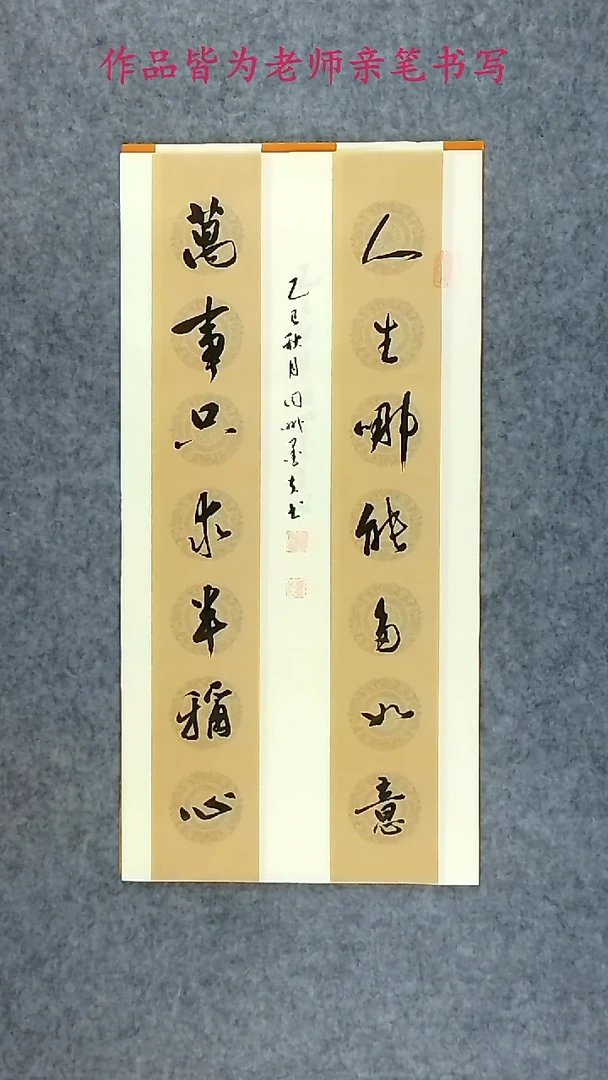 作品皆为老师亲笔书写
人生哪能多如意
乙巳秋月
萬事只求半稱心